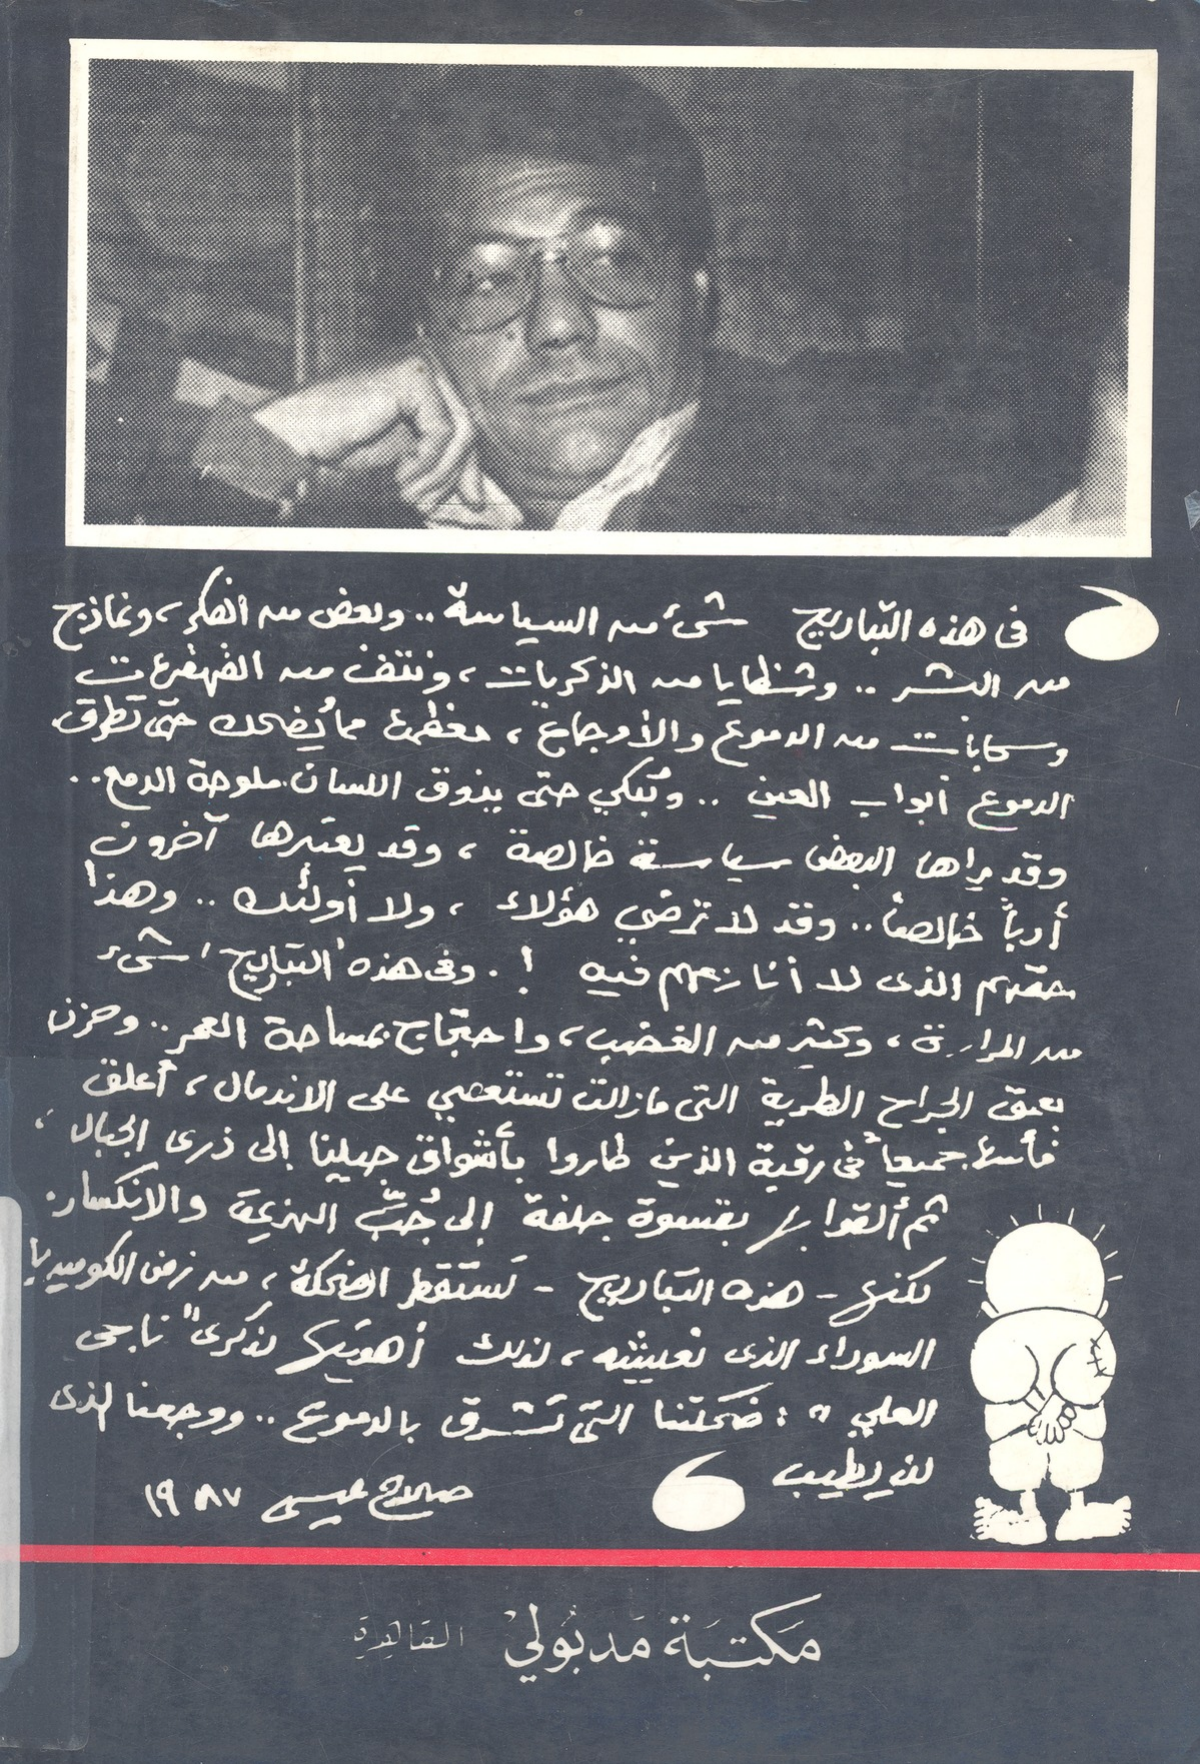 فى هذه التباريح شىء من السياسة .. وبعض من الفكر، ونماذج
من البشر .. وشظايا من الذكريات، ونتف من القهقهات
وسحابات من الدموع والأوجاع، معظمها مما يُضحك حتى تطرق
الدموع أبواب العين .. ويُبكي حتى يذوق اللسان ملوحة الدمع..
وقد يراها البعض سياسة خالصة، وقد يعتبرها آخرون
أدباً خالصاً .. وقد لا ترضي هؤلاء، ولا أولئك .. وهذا
حقهم الذى لا أنازعهم فيه ! . وفى هذه "التباريح" شىء
من المرارة، وكثير من الغضب، واحتجاج بمساحة العمر .. وحزن
بعمق الجراح الطرية التى مازالت تستعصي على الاندمال، أعلق
فأسها جميعاً فى رقبة الذين طاروا بأشواق جيلنا إلى ذرى الجبال،
ثم ألقوا بها بقسوة جلفة إلى جُبّ الهزيمة والانكسار.
لكنها - هذه التباريح - تستقطر الضحكة، من زمن الكوميديا
السوداء الذى نعيشه، لذلك أهديها لذكرى "ناجى
العلي" : ضحكتنا التى تشرق بالدموع .. ووجعنا الذى
لن يطيب
صلاح عيسى ١٩٨٧
مَكتبَة مَدبُولي القاهرة